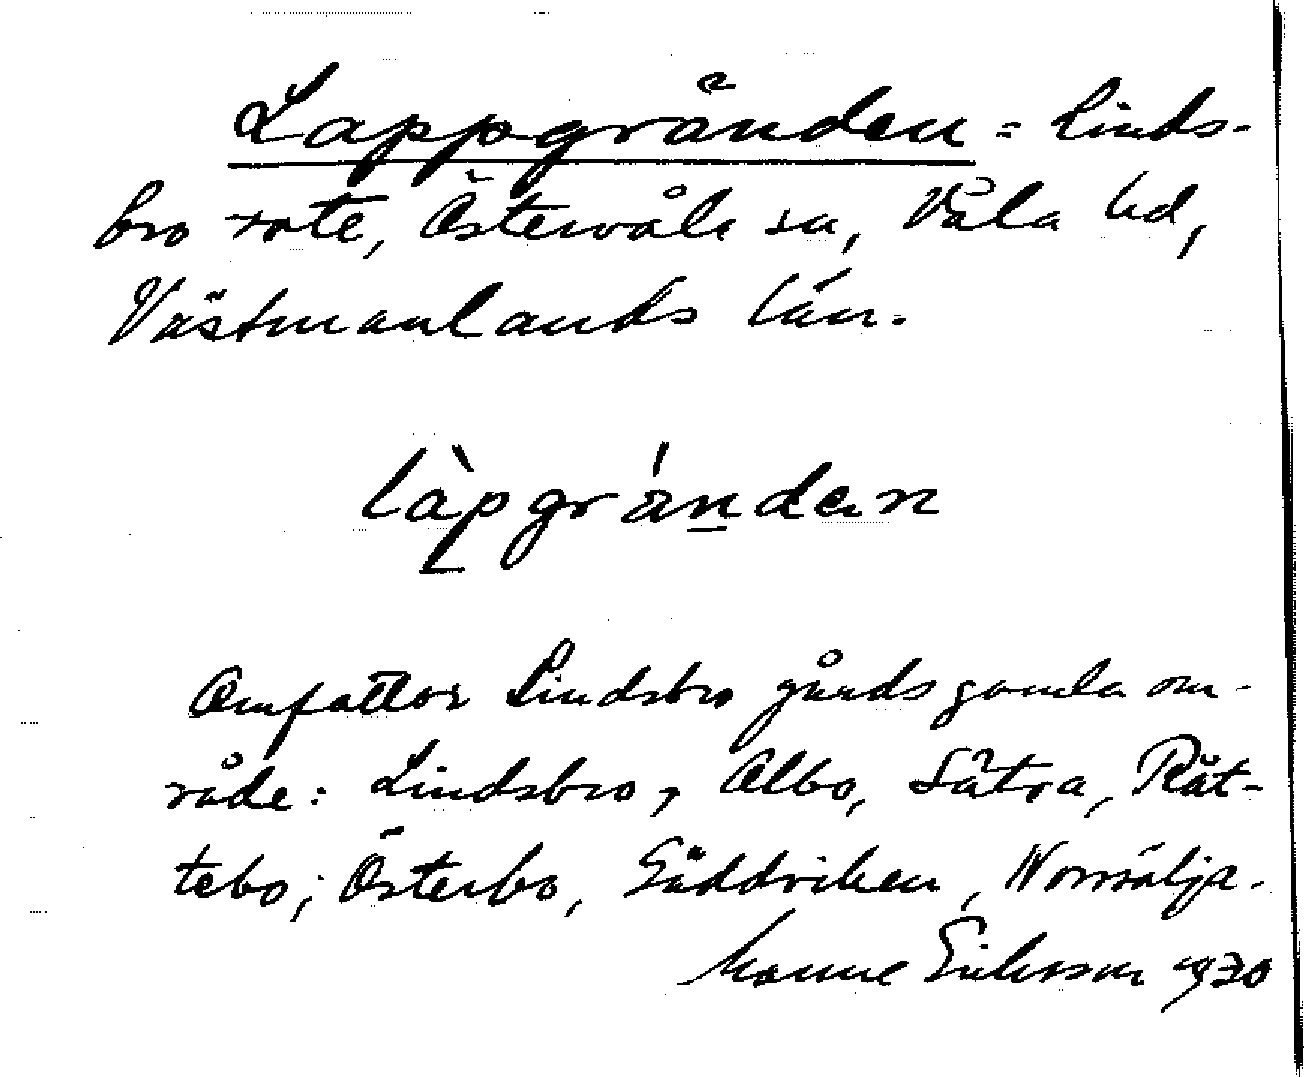 Lappgränden = Linds-
bro rote, Östervåla sn, Våla hd,
Västmanlands län.
làpgrándan
Omfattar Lindsbro gårds gamla om-
råde: Lindsbro, Albo, Sätra, Rät-
tebo, Österbo, Gäddviken, Norrälja.
Manne Eriksson 1930